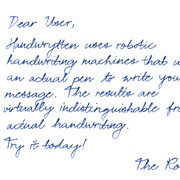 Dear User,
Handwrytten uses robotic
handwriting machines that u
an actual pen to write you
message. The results are
virtually indistinguishable fr
actual handwriting.
Try it today!
The Ro